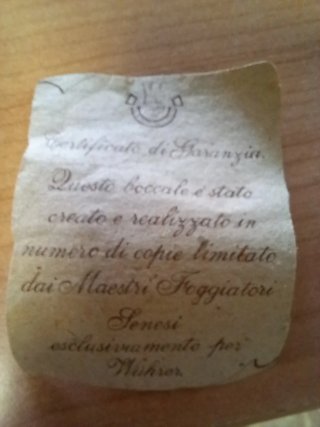 Certificato di Garanzia.
Questo boccale è stato
creato e realizzato in
numero di copie limitato
dai Maestri Foggiatori
Senesi
esclusivamente per
Wührer.